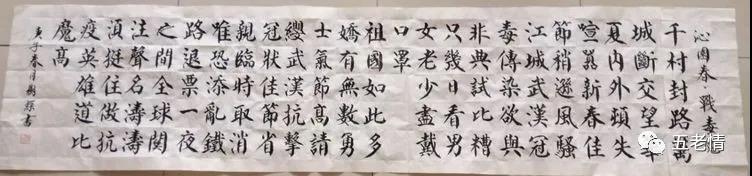 沁園春·戰毒
千村封路萬
城斷交望
夏内外頓失
喧囂新春佳
節稍遜風騷
江城武漢冠
毒傳染欲與
非典試比糟
只幾日看男
女老少盡戴
口罩
祖國如此多
嬌有無數勇
士氣節高請
纓武漢抗擊
冠狀佳節省
親臨時取消
唯恐添亂鐵
路退票一夜
之間全球関
注聲名濤濤
湏挺住做抗
疫英雄道比
魔高
庚子春月書
五老情